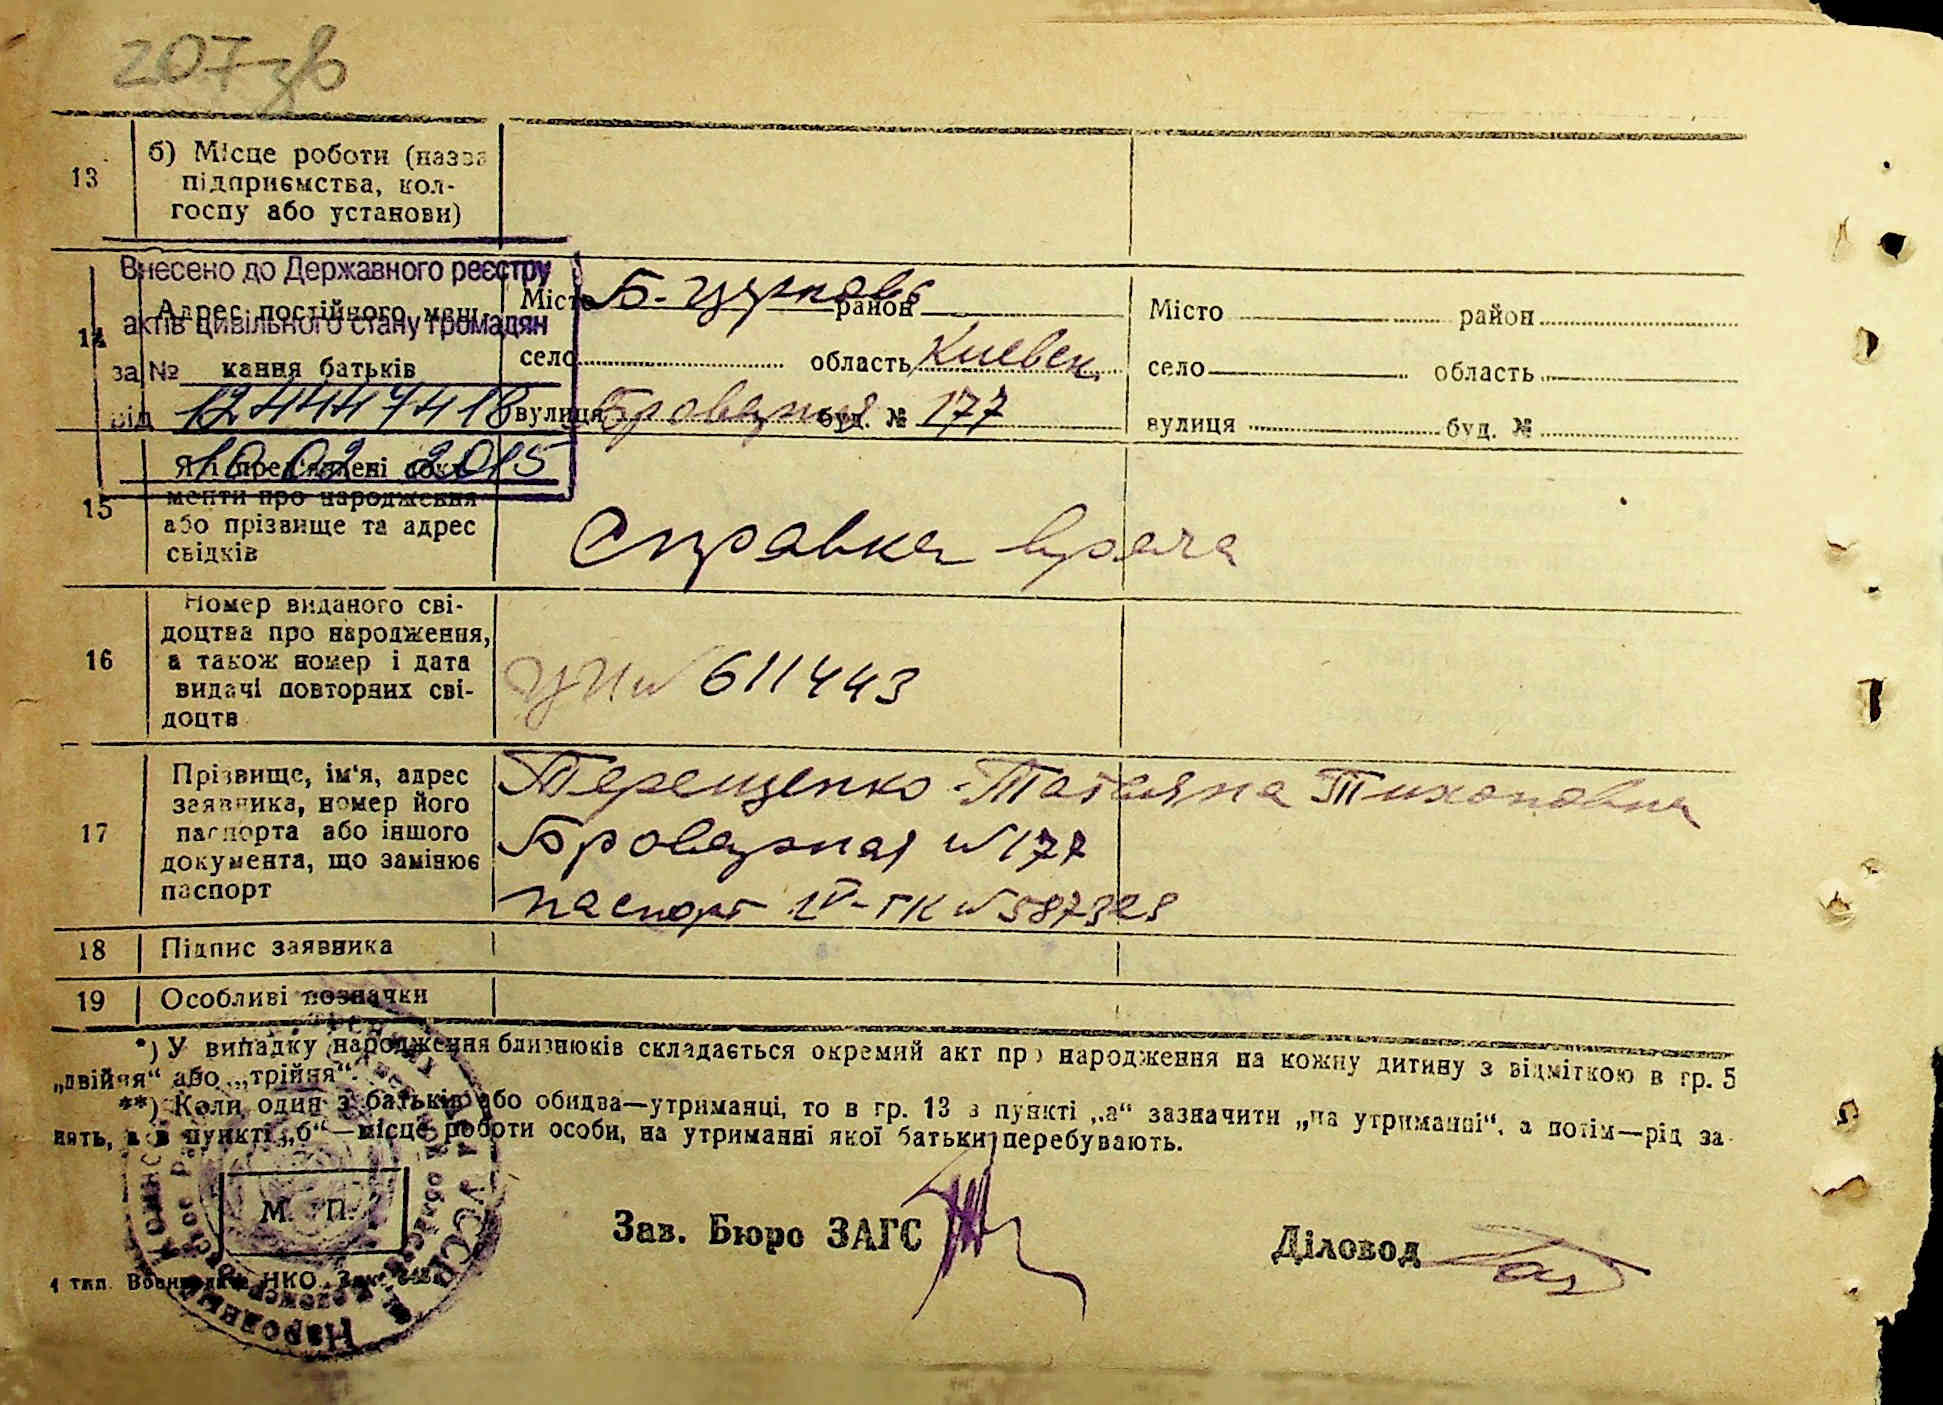 207 зв
13
б) Місце роботи (назва
підприємства, кол-
госпу або установи)
Внесено до Державного реєстру
актів цивільного стану громадян
за №
124447418
від
10 02 2015
14
Адрес постійного меш-
кання батьків
Місто Б-Церковь район
село область Киевск.
вулиця Броварная буд. № 177
Місто район
село область
вулиця буд. №
15
Які пред'явлені доку-
менти про народження
або прізвище та адрес
свідків
Справка врача
16
Номер виданого сві-
доцтва про народження,
а також номер і дата
видачі повторних сві-
доцтв
№ 611443
17
Прізвище, ім'я, адрес
заявника, номер його
паспорта або іншого
документа, що замінює
паспорт
Терещенко - Татьяна Тихоновна
Броварная №177
паспорт IV-ГК №
18
Підпис заявника
19
Особливі позначки
*) У випадку народження близнюків складається окремий акт про народження на кожну дитину з відміткою в гр. 5
„двійня“ або „трійня“.
**) Коли один з батьків або обидва—утриманці, то в гр. 13 в пункті „а“ зазначити „на утриманні“, а потім—рід за-
нять, а в пункті „б“—місце роботи особи, на утриманні якої батьки перебувають.
М. П.
Зав. Бюро ЗАГС
Діловод
1 тип. НКО Зак.